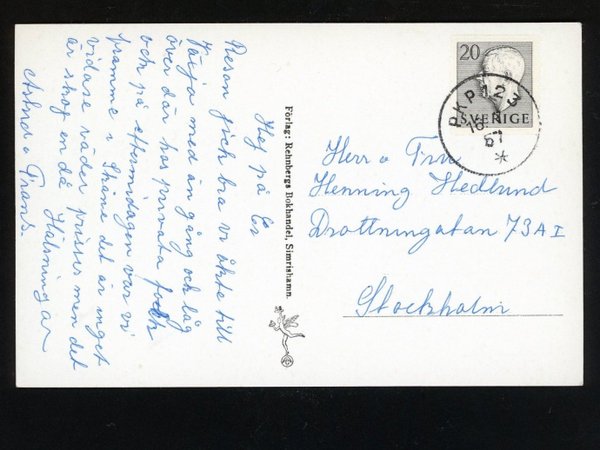 Hej på Er
Resan gick bra vi åkte till
Värja med en gång och låg
över där hos privata folk
och på eftermidagen var vi
framme i Skåne det är inget
vidare väder precis men det
är skoj en då Hälsningar
Astrid o Frans.
Förlag: Rehnbergs Bokhandel, Simrishamn.
20
SVERIGE
PKP 123
57
Herr o Fru
Henning Hedlund
Drottningatan 73A I
Stockholm